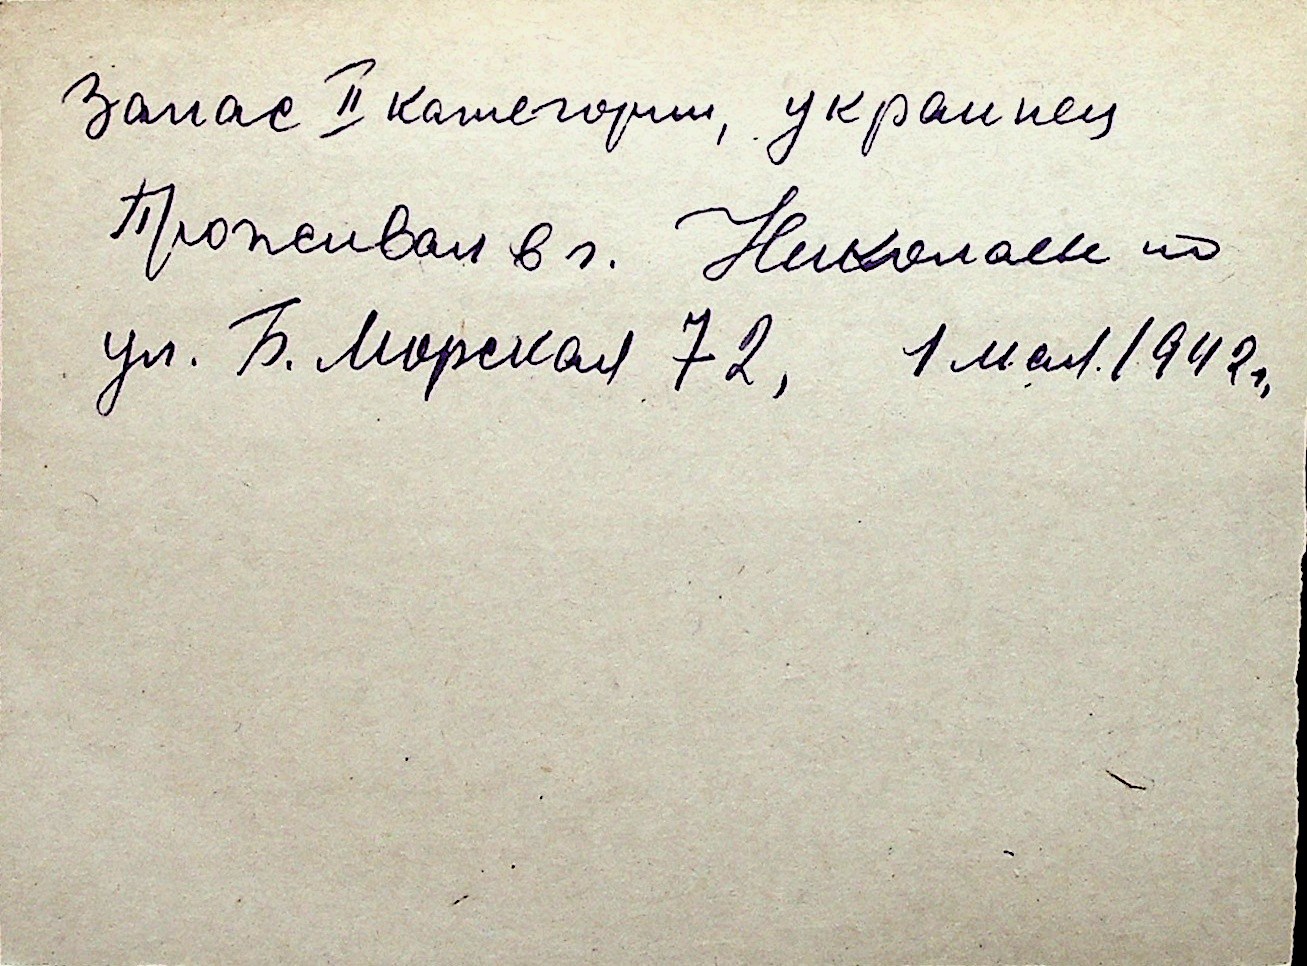 Запас II категории, украинец
Проживал в г. Николаеве по
ул. Б. Морская 72, 1 мая. 1942г,